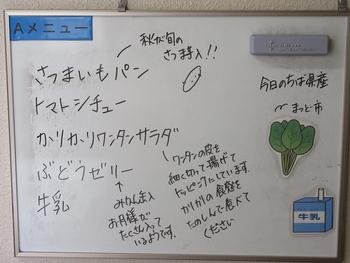 Aメニュー
秋が旬の
さつま芋入り!!
さつまいもパン
トマトシチュー
カリカリワンタンサラダ
ぶどうゼリー
牛乳
みかん缶入
お月様が
たくさん入って
いるようです。
ワンタンの皮を
細く切って揚げて
トッピングにしています。
カリカリの食感を
たのしんで食べて
ください
今日のちば県産
まつど市
牛乳